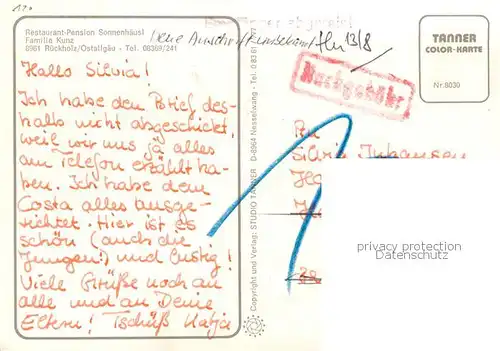 Restaurant-Pension Sonnenhäusl
Familie Kunz
8961 Rückholz/Ostallgäu - Tel. 08369/241
Neue Anschrift unbekannt
13/8
TANNER
COLOR-KARTE
Nr. 8030
Nachgebühr
Hallo Silvia!
Ich habe den Brief des-
halb nicht abgeschickt,
weil wir uns ja alles
am Telefon erzählt ha-
ben. Ich habe dem
Costa alles ausge-
richtet. Hier ist es
schön (auch die
Jungen!) und lustig!
Viele Grüße noch an
alle und an Deine
Eltern! Tschüß Katja
Copyright und Verlag: STUDIO TANNER · D-8964 Nesselwang - Tel. 0 83 61
An
privacy protection
www.ansichtskartenversand.com